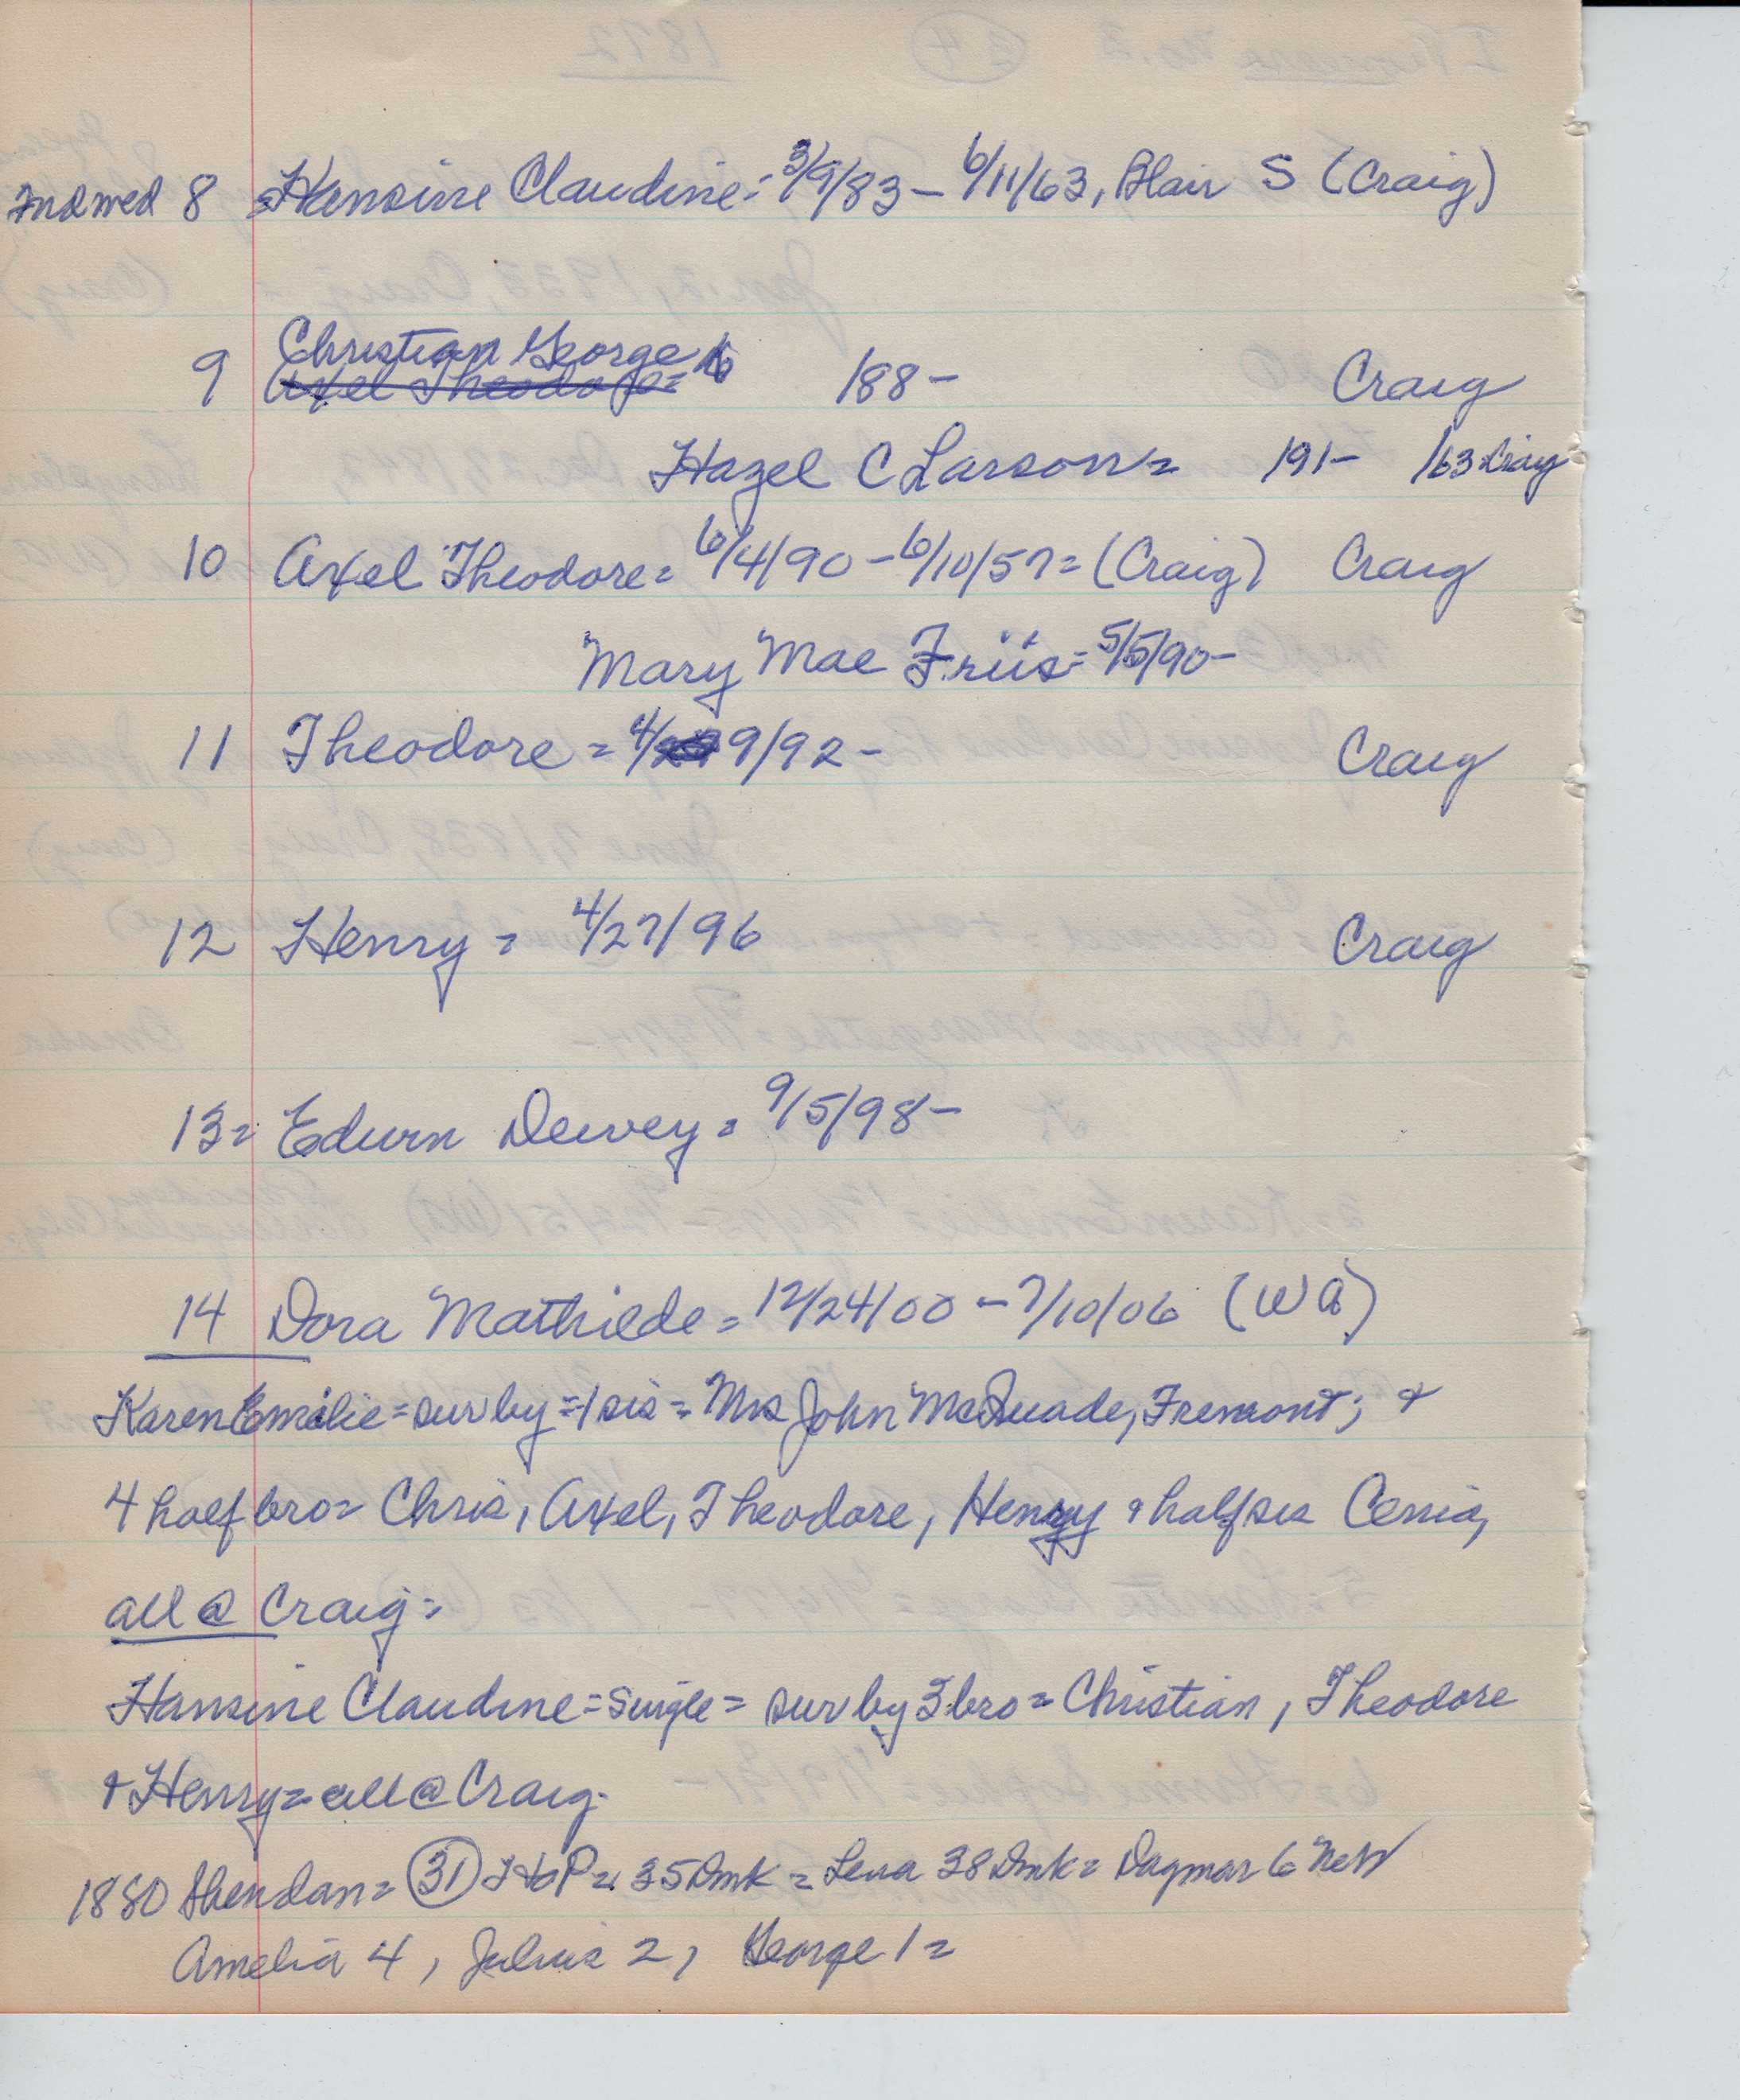 2nd wed 8 = Hansine Claudine = 3/9/83 – 6/11/63, Blair S (Craig)
9 Christian George
Axel Theodore = 188– Craig
Hazel C Larson = 191– /63 = Craig
10 Axel Theodore = 6/4/90 – 6/10/57 = (Craig) Craig
Mary Mae Friis = 5/5/90 –
11 Theodore = 4/29/92 – Craig
12 Henry = 4/27/96 Craig
13 = Edwin Dewey = 9/5/98 –
14 Dora Mathilde = 12/24/00 – 7/10/06 (WA)
Karen Emilie = sur by = 1 sis = Mrs John McQuade, Fremont; +
4 half bro = Chris, Axel, Theodore, Henry + half sis Cenia,
all @ Craig =
Hansine Claudine = single = sur by 3 bro = Christian, Theodore
+ Henry = all @ Craig.
1880 Sheridan = 31 = 35 Dmk = Lena 38 Dmk = Dagmar 6 Neb
Amelia 4, Julius 2, George 1 =